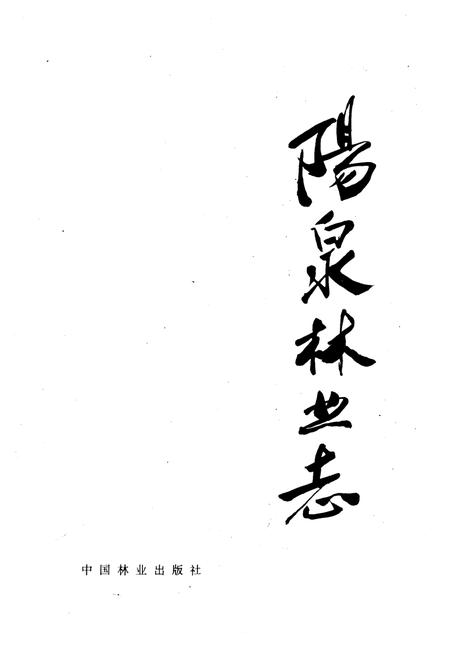 陽泉林业志
中国林业出版社